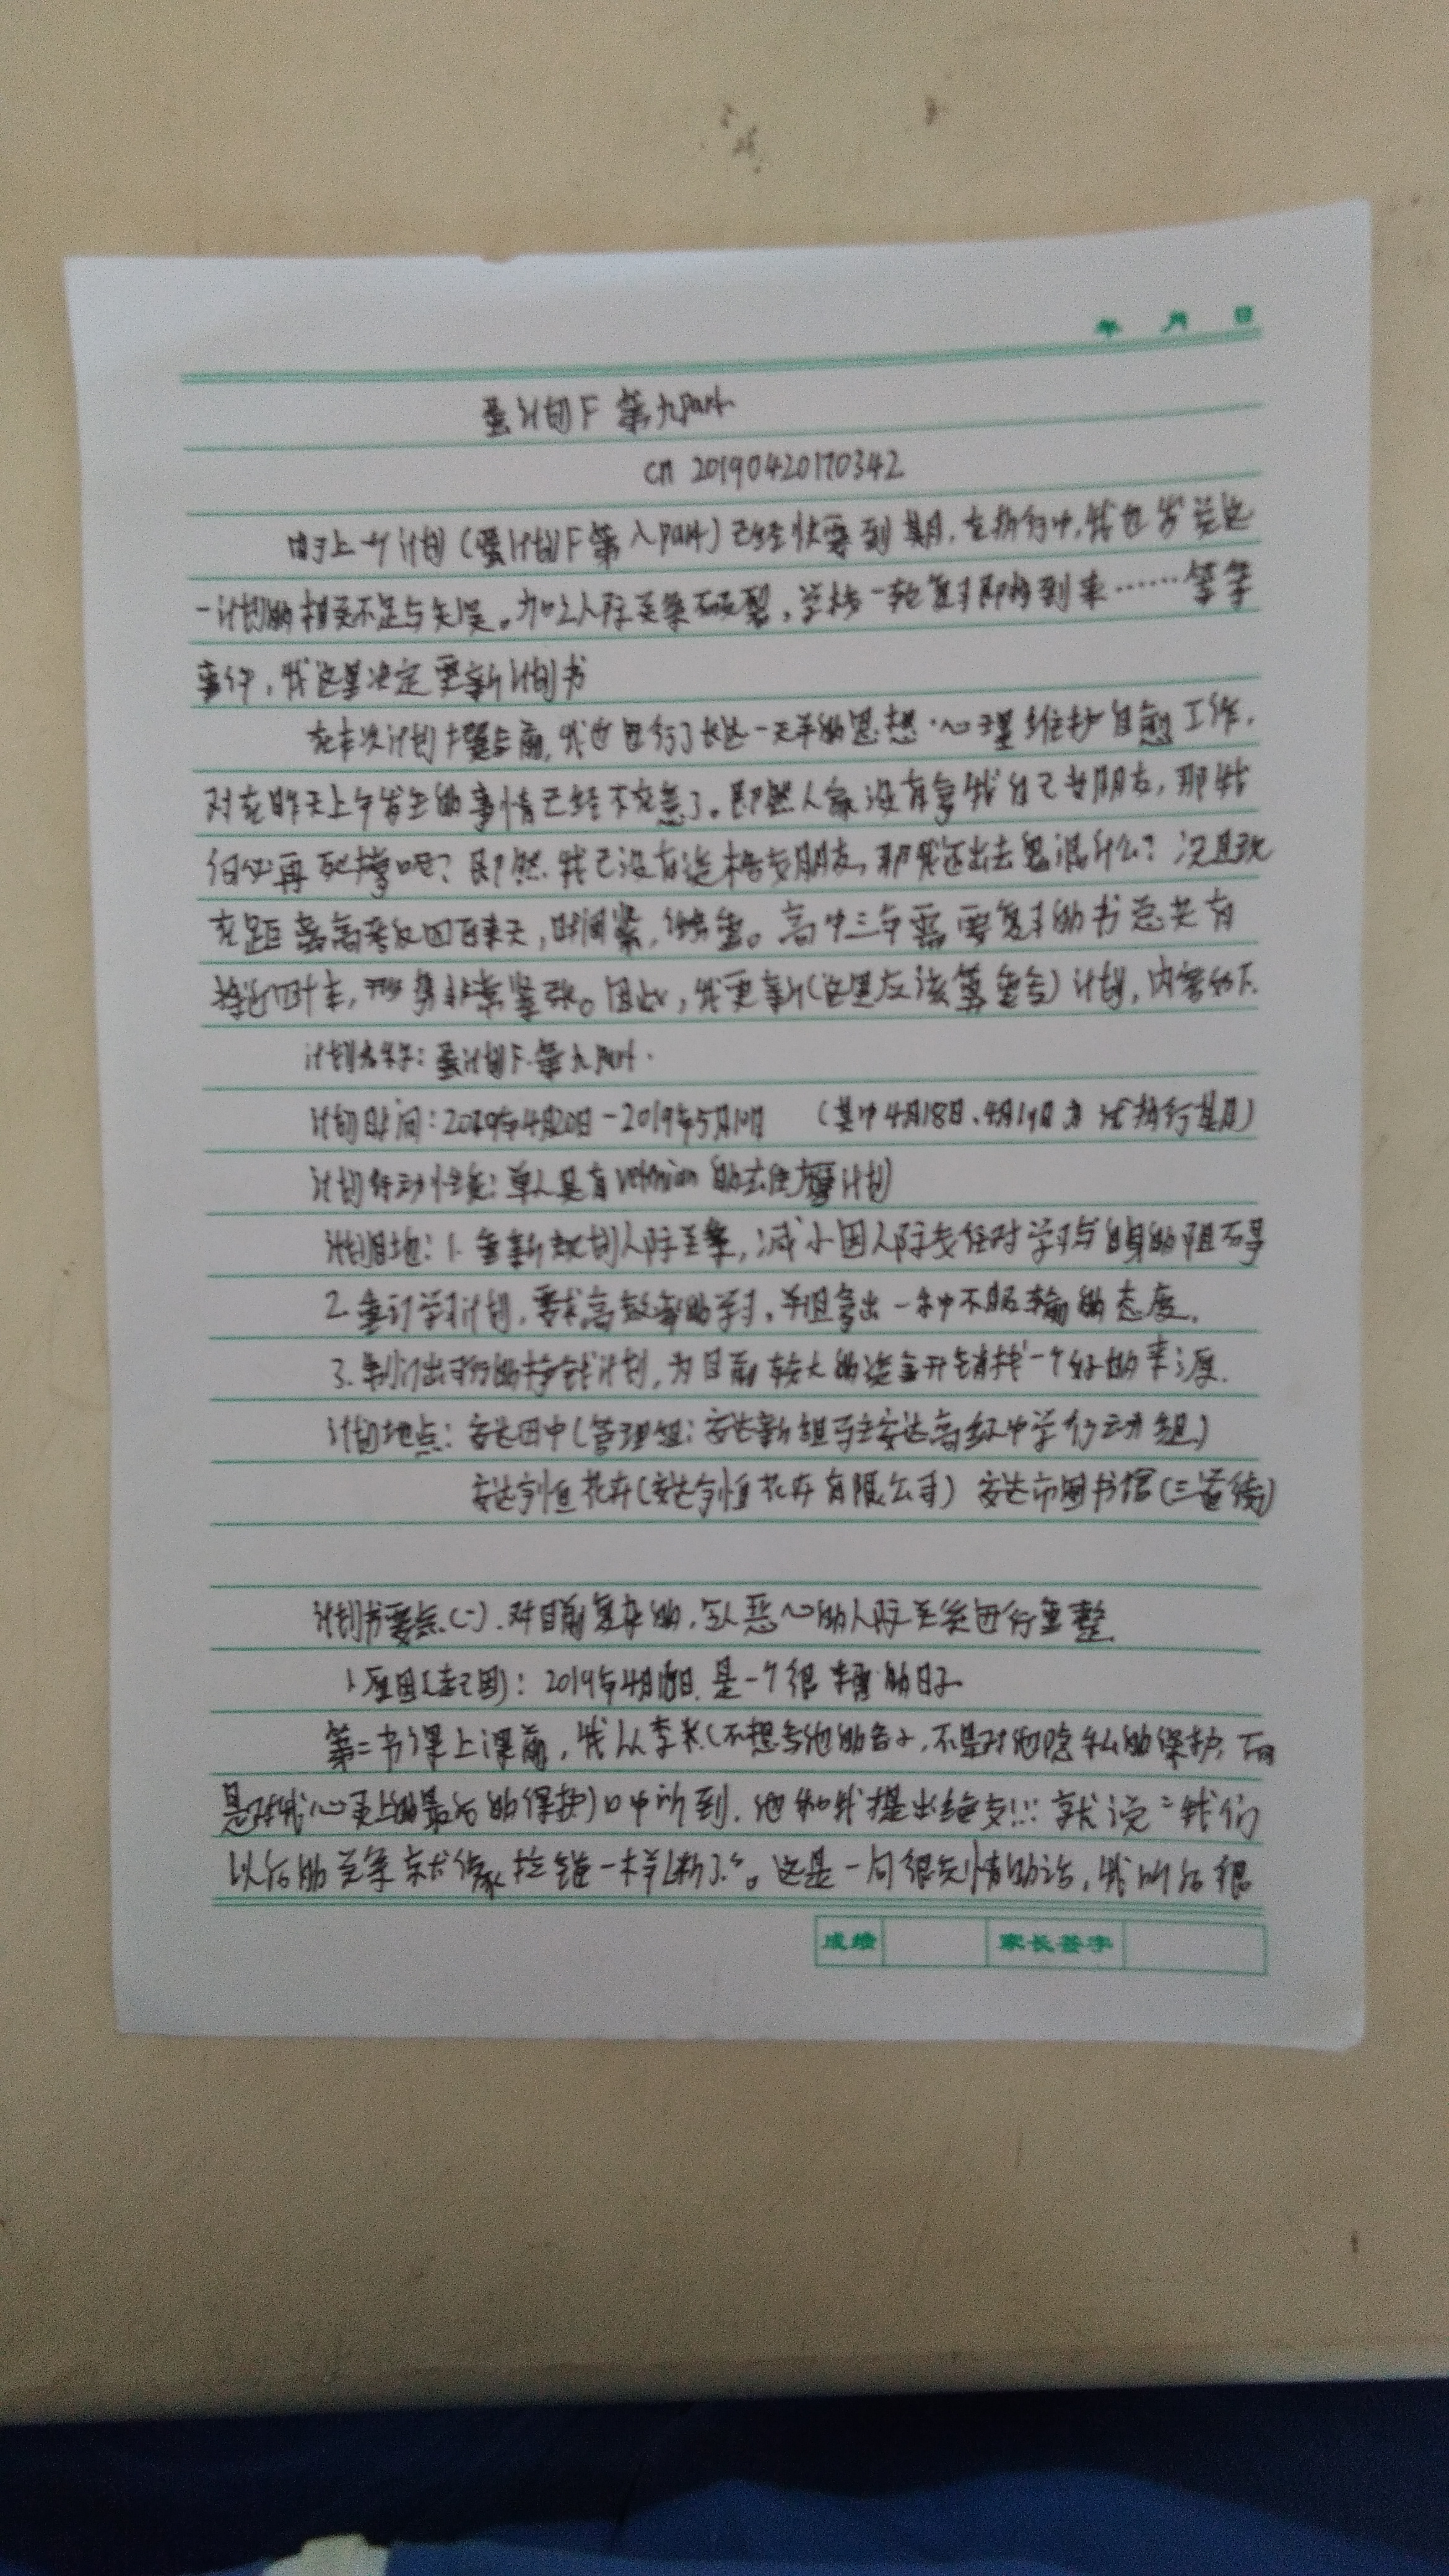 年 月 日
蛋计划F 第九part
cn 20190420170342
由于上一个计划(蛋计划F第八part)已经快要到期,在执行中,我也发觉这
一计划的相关不足与失误。加之人际关系破裂,学校一轮复习即将到来……等等
事件,我这里决定更新计划书
在本次计划撰写前,我也进行了长达一天半的思想·心理维护自愈工作,
对在昨天上午发生的事情已经不在意了。即然人家没有拿我自己当朋友,那我
何必再死撑呢?即然我已没有资格交朋友,那我还出去鬼混什么?况且现
在距离高考仅四百来天,时间紧,任务重。高中三年需要复习的书总共有
接近四十本,形势非常紧张。因此,我更新(这里应该算重写)计划,内容如下.
计划名字:蛋计划F.第九part.
计划时间:2019年4月20日-2019年5月10日 (其中4月18日、4月19日为试执行其月)
计划行动性质:单人具有 的计划
计划目地:1.重新规划人际关系,减小因人际交往对学习与自身的阻碍
2.重订学习计划,要求高效率的学习,并且拿出一种不服输的态度.
3.制订出较好的挣钱计划,为目前较大的资金开销找一个好的来源.
计划地点:安达田中(管理组:安达新组手主安达高级中学行动组)
安达创恒花卉(安达创恒花卉有限公司) 安达市图书馆(三道街)
计划书要点.(一).对目前复杂的,令人恶心的人际关系进行重整.
1.原因(起因):2019年4月18日.是一个很糟的日子.
第二节课上课前,我从李米(不想写他的名子,不是对他隐私的保护,而
是对我心灵上的最后的保护)口中听到,他和我提出绝交!!! 就说“我们
以后的关系就像拉链一样断了”。这是一句很无情的话,我听后很
成绩 家长签字